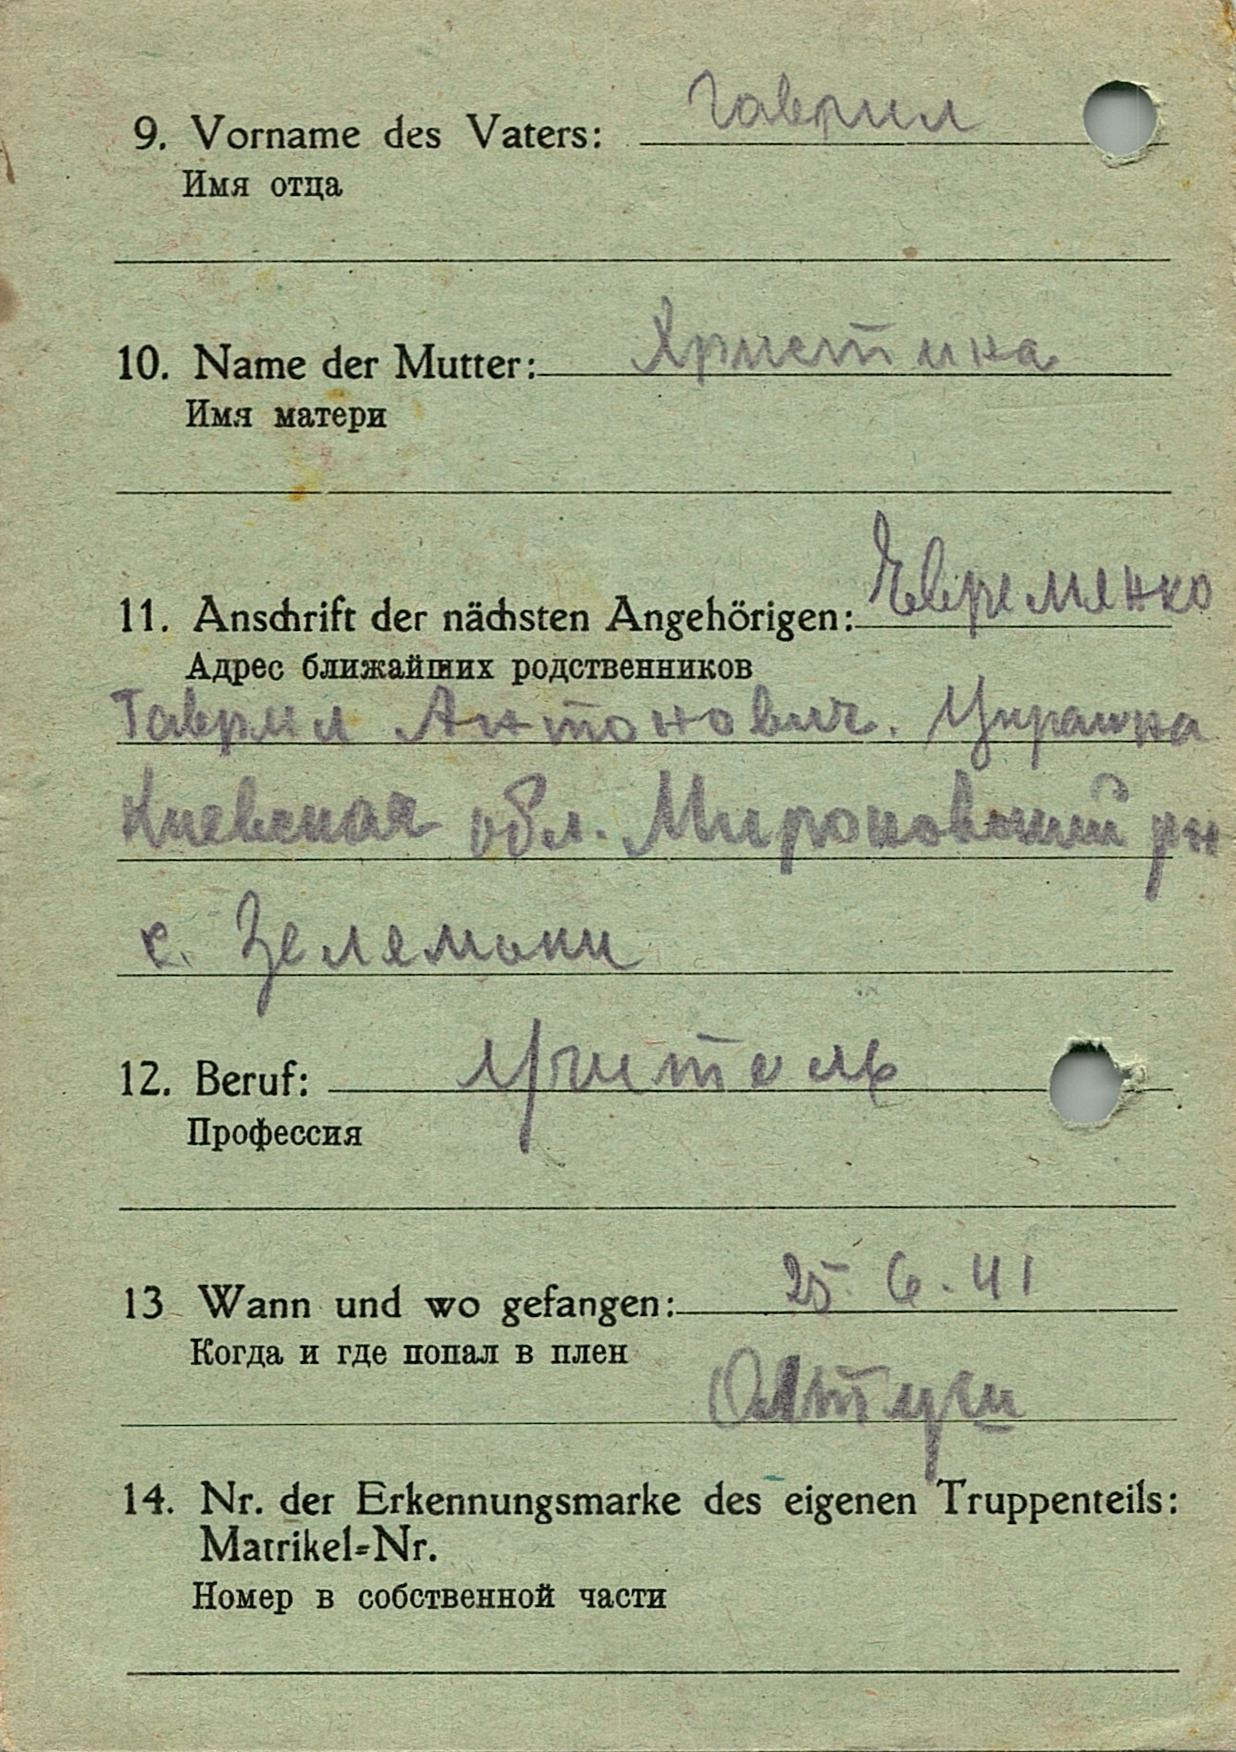 9. Vorname des Vaters: Гаврил
Имя отца
10. Name der Mutter: Христина
Имя матери
11. Anschrift der nächsten Angehörigen: Евременко
Адрес ближайших родственников
Гаврил Антонович. Украина
Киевская обл. Мироновский рн
с. Зеленьки
12. Beruf: Учитель
Профессия
13 Wann und wo gefangen: 25. 6. 41
Когда и где попал в плен
14. Nr. der Erkennungsmarke des eigenen Truppenteils:
Matrikel=Nr.
Номер в собственной части